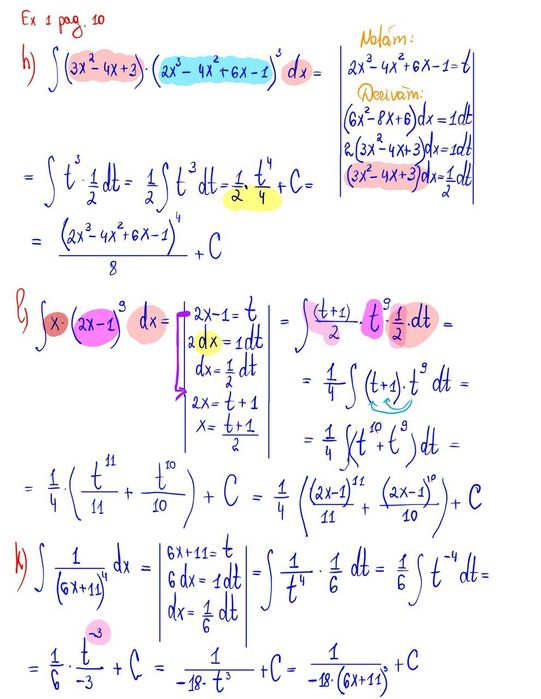 Ex 1 pag. 10
h) ∫ (3x² - 4x + 3) · (2x³ - 4x² + 6x - 1)³ dx =
Notăm:
2x³ - 4x² + 6x - 1 = t
Derivăm:
(6x² - 8x + 6) dx = 1dt
2(3x² - 4x + 3) dx = 1dt
(3x² - 4x + 3) dx = 1/2 dt
= ∫ t³ · 1/2 dt = 1/2 ∫ t³ dt = 1/2 · t⁴/4 + C =
= (2x³ - 4x² + 6x - 1)⁴/8 + C
l) ∫ x · (2x - 1)⁹ dx =
2x - 1 = t
2 dx = 1dt
dx = 1/2 dt
2x = t + 1
x = (t + 1)/2
= ∫ (t + 1)/2 · t⁹ · 1/2 · dt =
= 1/4 ∫ (t + 1) · t⁹ dt =
= 1/4 ∫ (t¹⁰ + t⁹) dt =
= 1/4 · (t¹¹/11 + t¹⁰/10) + C = 1/4 ((2x - 1)¹¹/11 + (2x - 1)¹⁰/10) + C
k) ∫ 1/(6x + 11)⁴ dx =
6x + 11 = t
6 dx = 1dt
dx = 1/6 dt
= ∫ 1/t⁴ · 1/6 dt = 1/6 ∫ t⁻⁴ dt =
= 1/6 · t⁻³/-3 + C = 1/(-18 · t³) + C = 1/(-18 · (6x + 11)³) + C